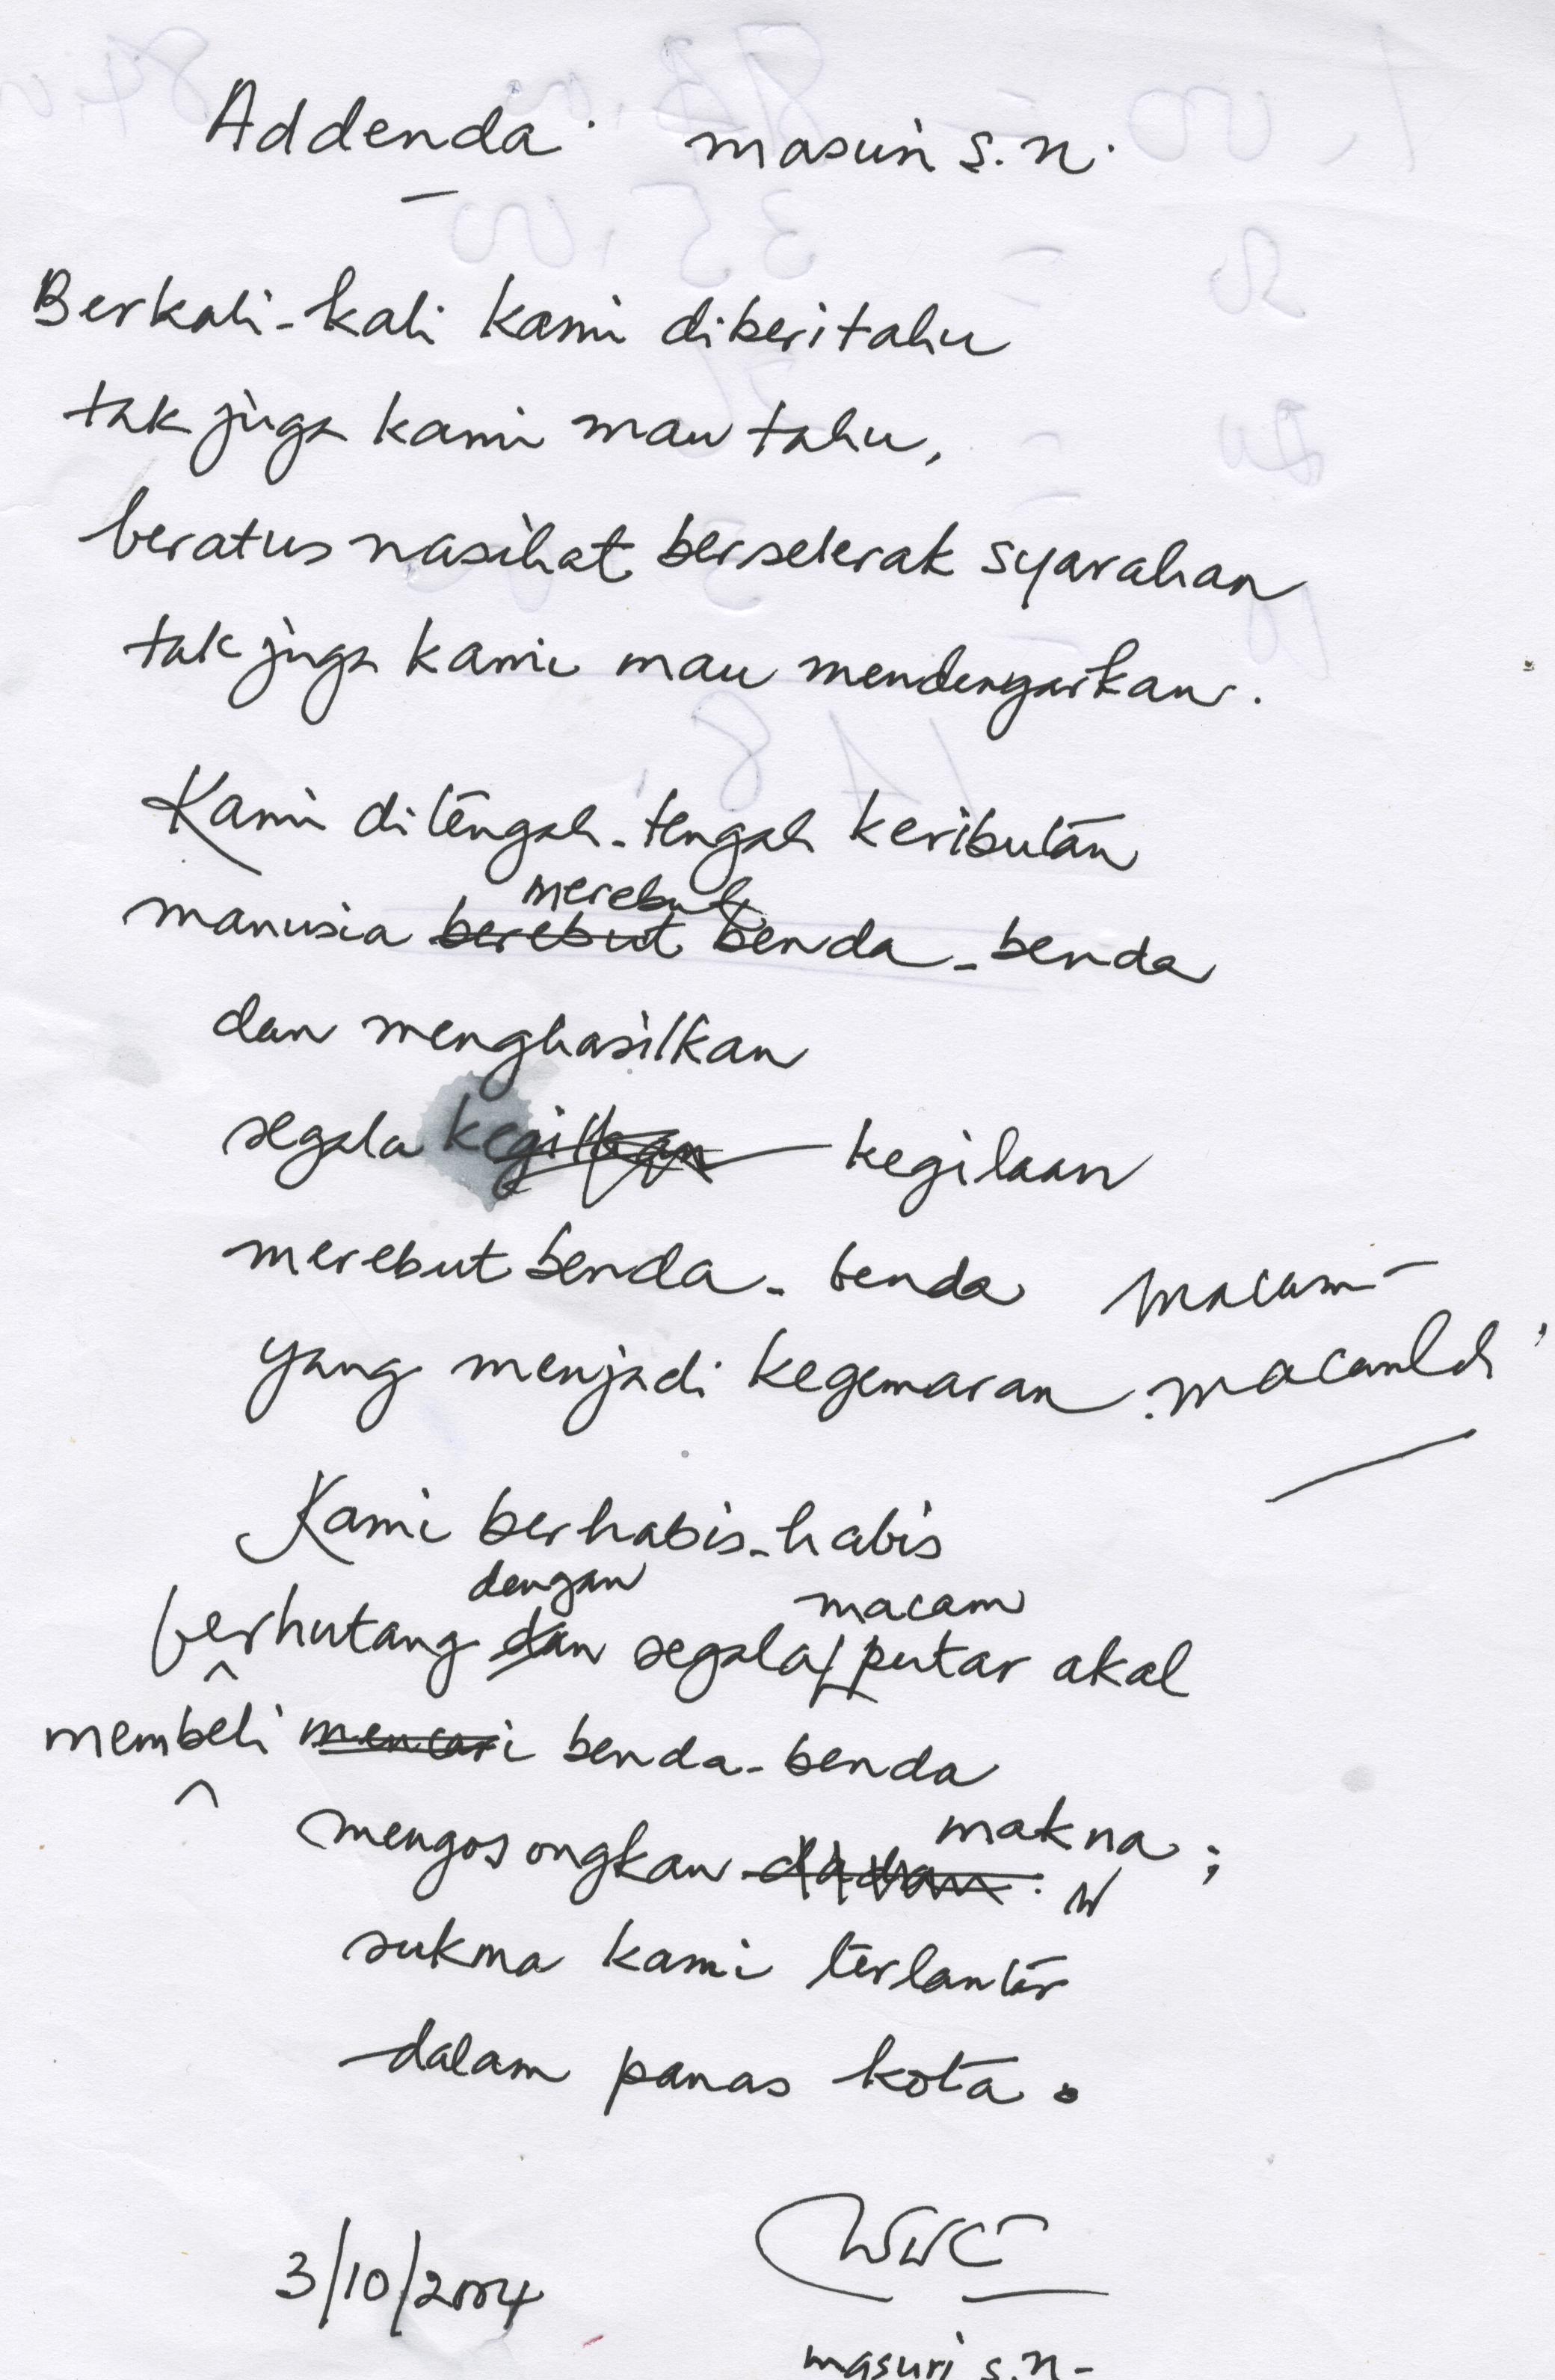 Addenda masuri s.n.
Berkali-kali kami diberitahu
tak juga kami mau tahu,
beratus nasihat berselerak syarahan
tak juga kami mau mendengarkan.
Kami ditengah-tengah keributan
merebut
manusia berebut benda-benda
dan menghasilkan
segala kegilaan kegilaan
merebut benda-benda macam-
yang menjadi kegemaran macam
Kami berhabis-habis
dengan macam
berhutang dan segala putar akal
membeli mencari benda-benda
makna;
mengosongkan
sukma kami terlantar
dalam panas kota.
3/10/2004
masuri s.n-